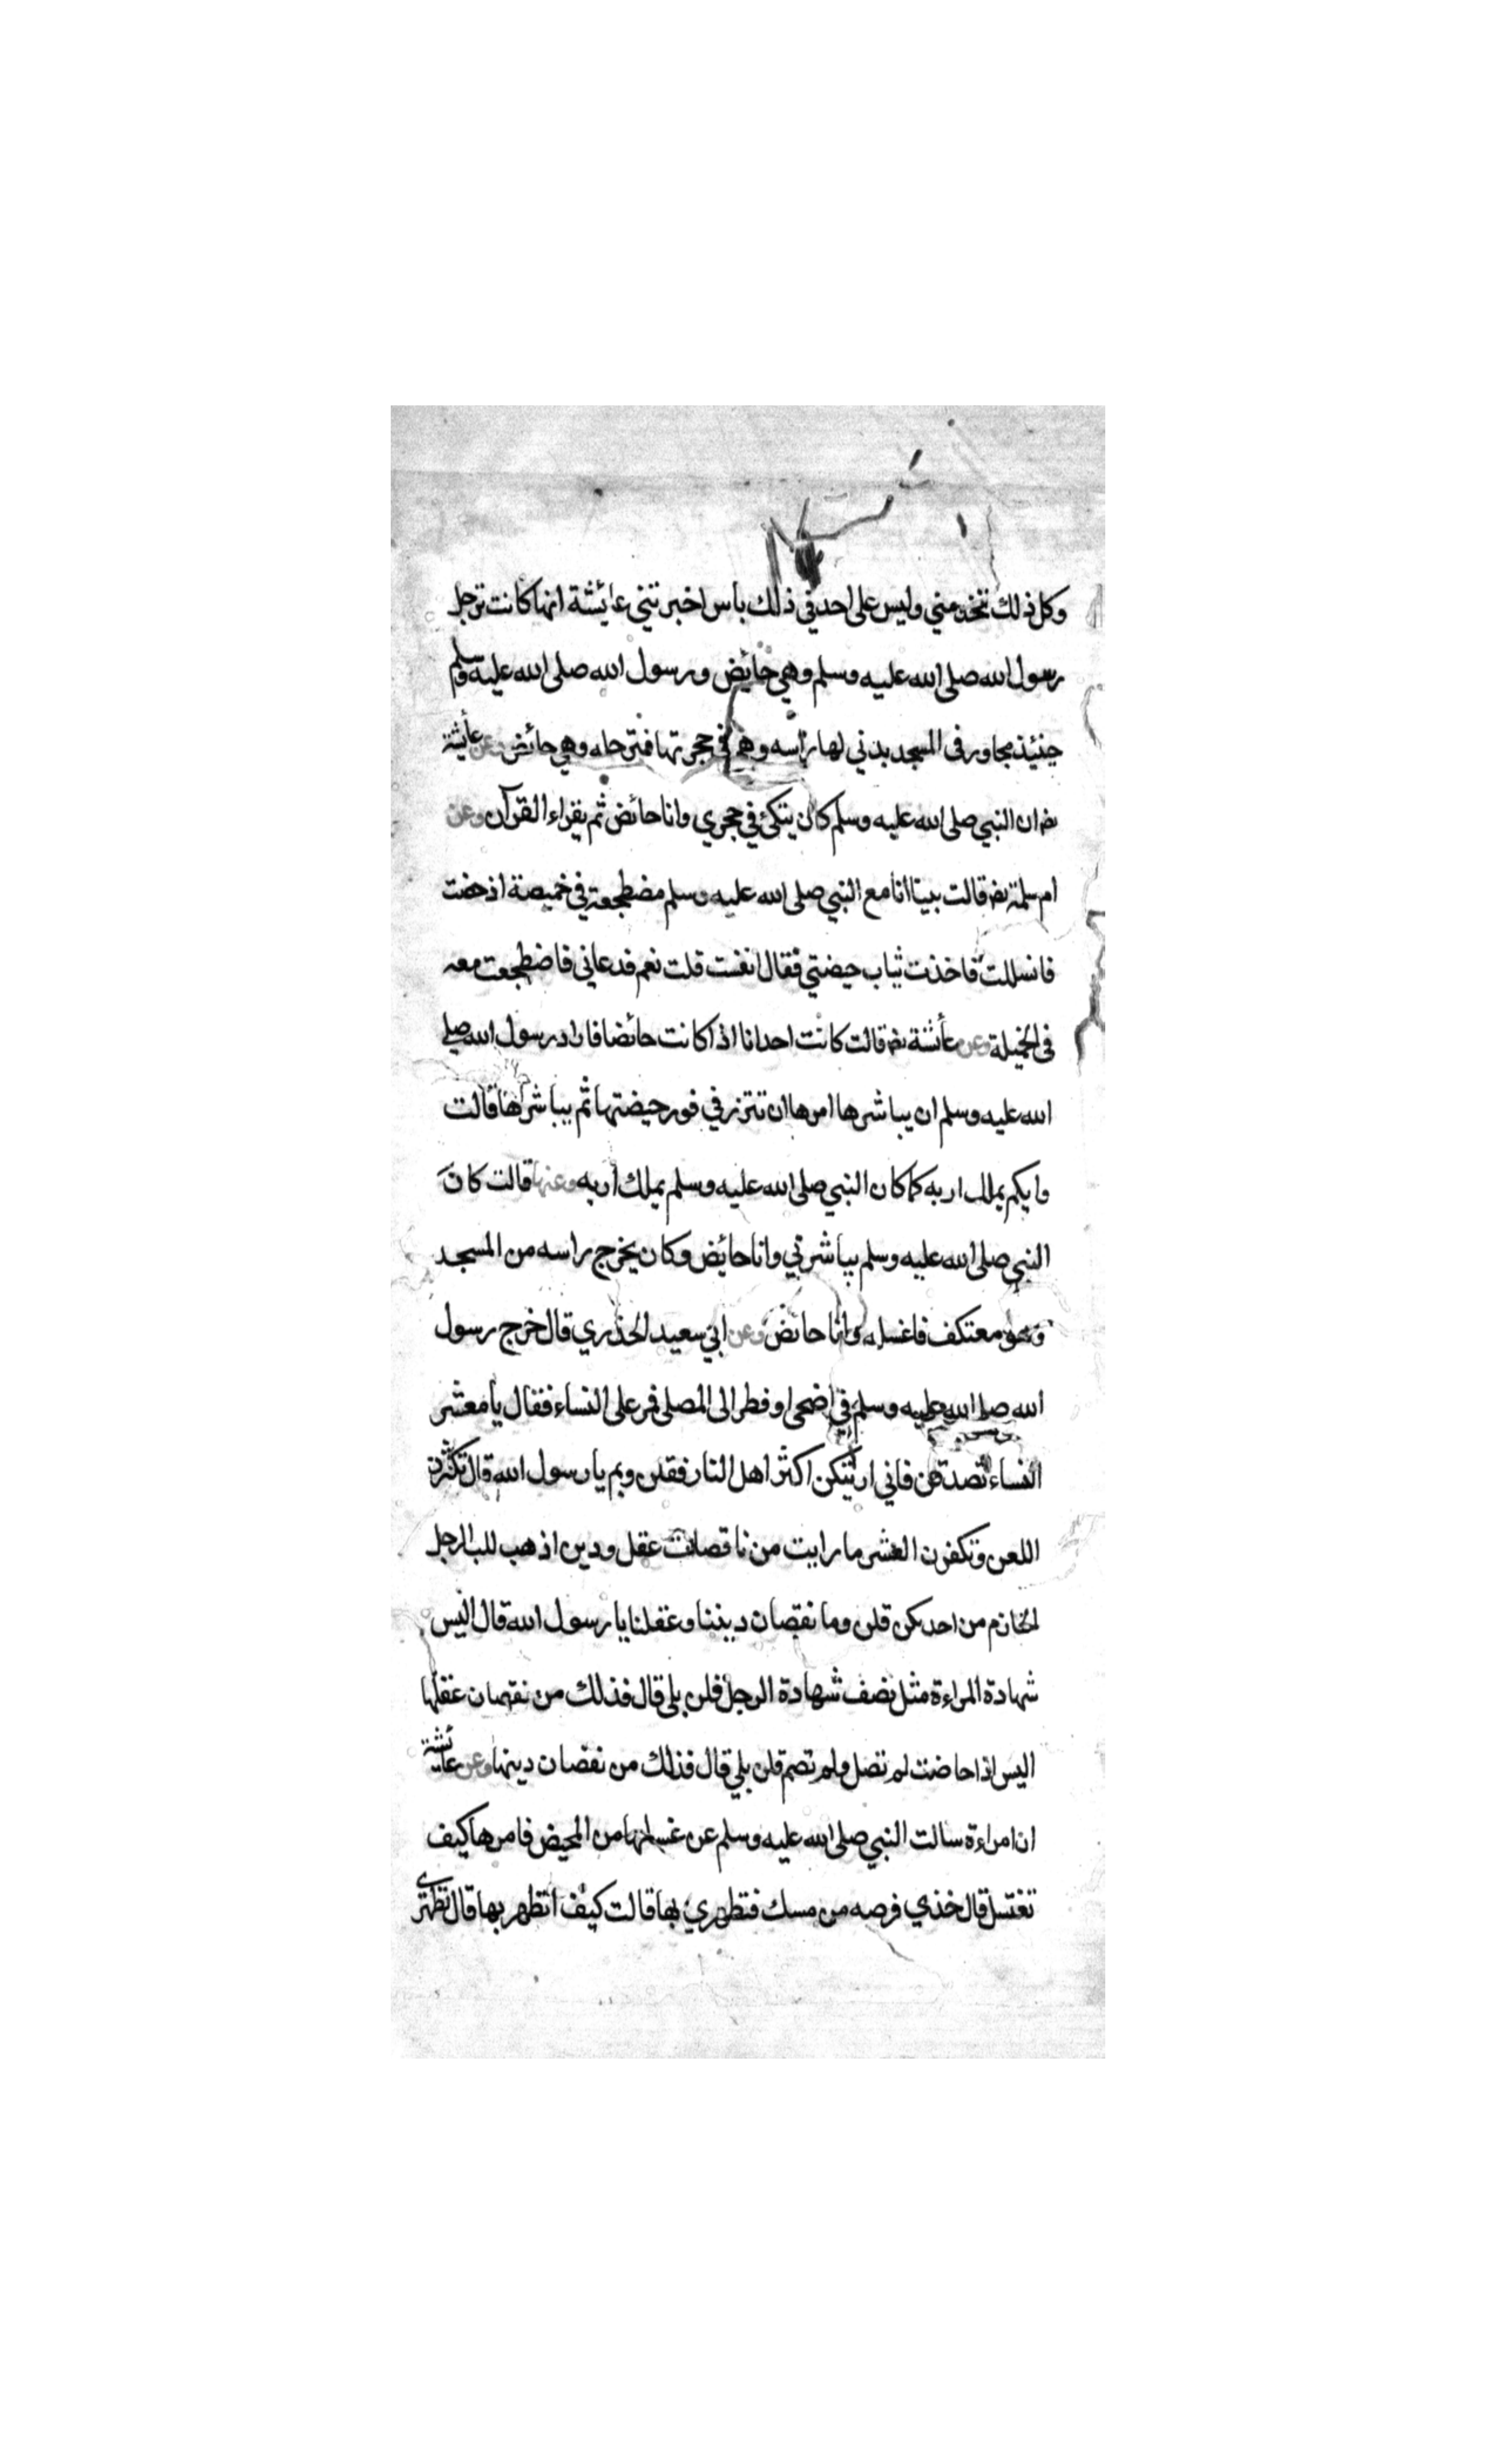 وكل ذلك تخدمني وليس على احد في ذلك باس اخبرتني عائشة انها كانت ترجل
رسول الله صلى الله عليه وسلم وهي حائض ورسول الله صلى الله عليه وسلم
حينئذ مجاور في المسجد يدني لها رأسه وهي في حجرتها فترجله وهي حائض وعن عائشة
رضـ ان النبي صلى الله عليه وسلم كان يتكئ في حجري وانا حائض ثم يقراء القرآن وعن
ام سلمة رضـ قالت بينا انا مع النبي صلى الله عليه وسلم مضطجعة في خميصة اذ حضت
فانسللت فاخذت ثياب حيضتي فقال انفست قلت نعم فدعاني فاضطجعت معه
في الخميلة وعن عائشة رضـ قالت كانت احدانا اذا كانت حائضا فاراد رسول الله صلى
الله عليه وسلم ان يباشرها امرها ان تتزر في فور حيضتها ثم يباشرها قالت
وايكم يملك اربه كما كان النبي صلى الله عليه وسلم يملك اربه وعنها قالت كان
النبي صلى الله عليه وسلم يباشرني وانا حائض وكان يخرج راسه من المسجد
وهو معتكف فاغسله وانا حائض وعن ابي سعيد الخذري قال خرج رسول
الله صلى الله عليه وسلم في اضحى او فطر الى المصلى فمر على النساء فقال يا معشر
النساء تصدقن فاني اريتكن اكثر اهل النار فقلن وبم يا رسول الله قال تكثرن
اللعن وتكفرن العشير ما رايت من ناقصات عقل ودين اذهب للب الرجل
الحازم من احدىكن قلن وما نقصان ديننا وعقلنا يا رسول الله قال اليس
شهادة المراءة مثل نصف شهادة الرجل قلن بلى قال فذلك من نقصان عقلها
اليس اذا حاضت لم تصل ولم تصم قلن بلي قال فذلك من نقصان دينها وعن عائشة
ان امراءة سالت النبي صلى الله عليه وسلم عن غسلها من المحيض فامرها كيف
تغتسل قال خذي فرصه من مسك فتطهري بها قالت كيف اتطهر بها قال تطهري